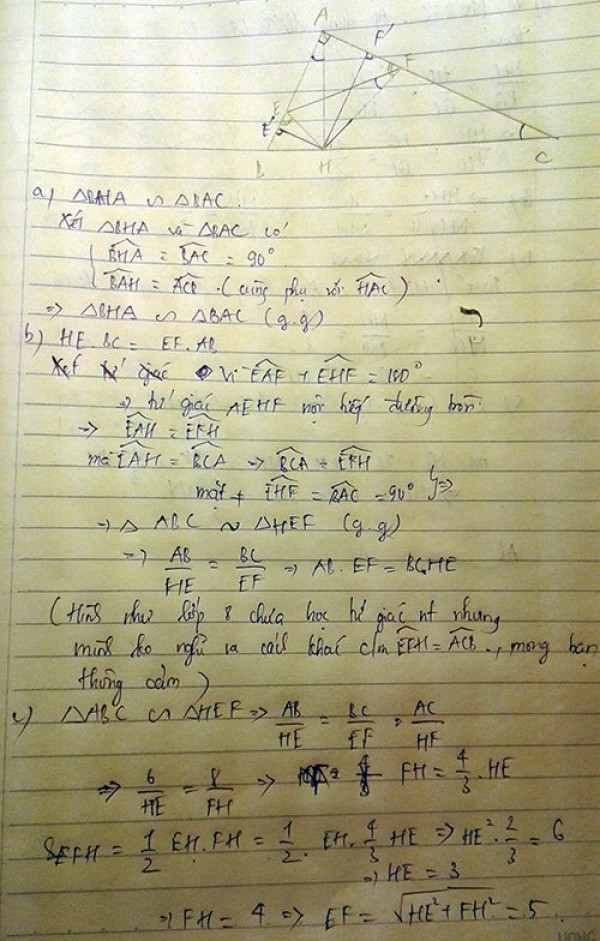 A
F'
F
E
E'
B
H
C
a) ΔBHA ∽ ΔBAC.
Xét ΔBHA và ΔBAC có
{ \widehat{BHA} = \widehat{BAC} = 90°
\widehat{BAH} = \widehat{ACB} . (cùng phụ với \widehat{HAC})
=> ΔBHA ∽ ΔBAC (g.g)
b) HE.BC = EF.AB
Vì \widehat{EAF} + \widehat{EHF} = 180°
=> tứ giác AEHF nội tiếp đường tròn.
=> \widehat{EAH} = \widehat{EFH}
mà \widehat{EAH} = \widehat{BCA} => \widehat{BCA} = \widehat{EFH}
mặt ≠ \widehat{EHF} = \widehat{BAC} = 90° } =>
=> Δ ABC ∽ ΔHEF (g.g)
=> AB/HE = BC/EF => AB.EF = BC.HE
(Hình như lớp 8 chưa học tứ giác nt nhưng
mình ko nghĩ ra cách khác c/m \widehat{EFH} = \widehat{ACB}., mong bạn
thông cảm)
c) ΔABC ∽ ΔHEF => AB/HE = BC/EF = AC/HF
=> 6/HE = 8/FH => FH = 4/3 . HE
S_{EFH} = 1/2 EH.FH = 1/2 . EH. 4/3 HE => HE² . 2/3 = 6
=> HE = 3
=> FH = 4 => EF = √(HE² + FH²) = 5.